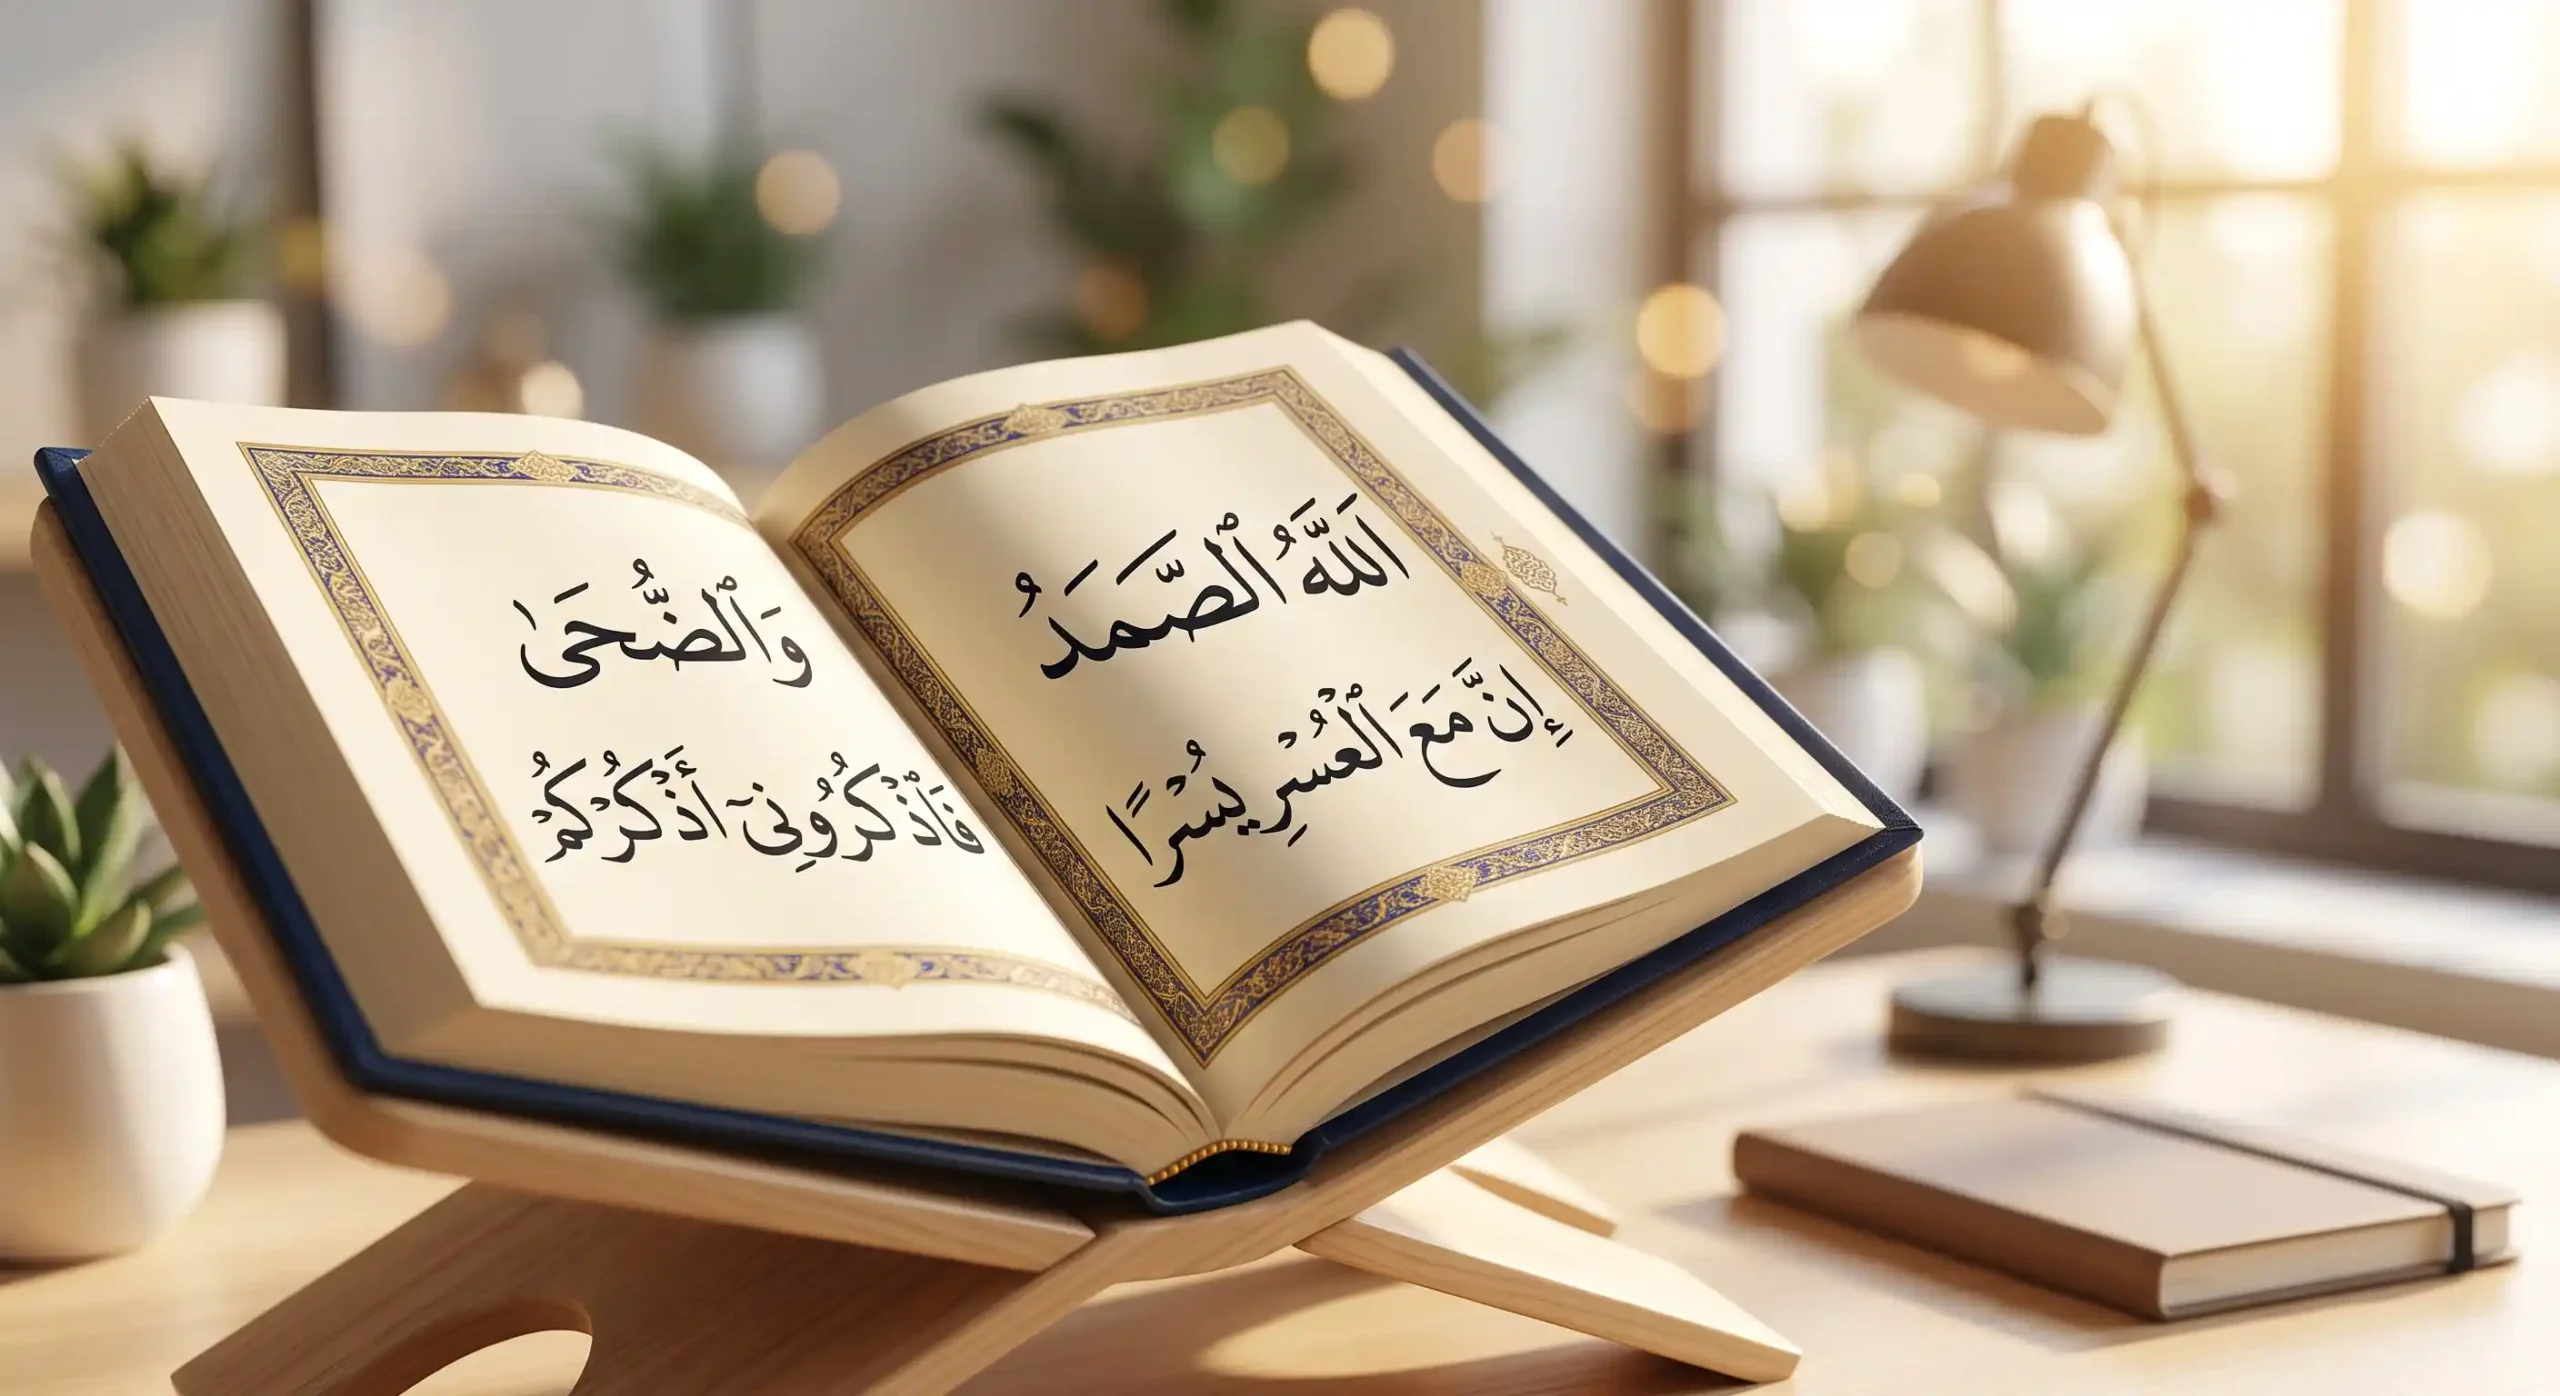 ٱللَّهُ ٱلصَّمَدُ
إِنَّ مَعَ ٱلْعُسْرِ يُسْرًا
وَٱلضُّحَىٰ
فَٱذْكُرُونِىٓ أَذْكُرْكُمْ